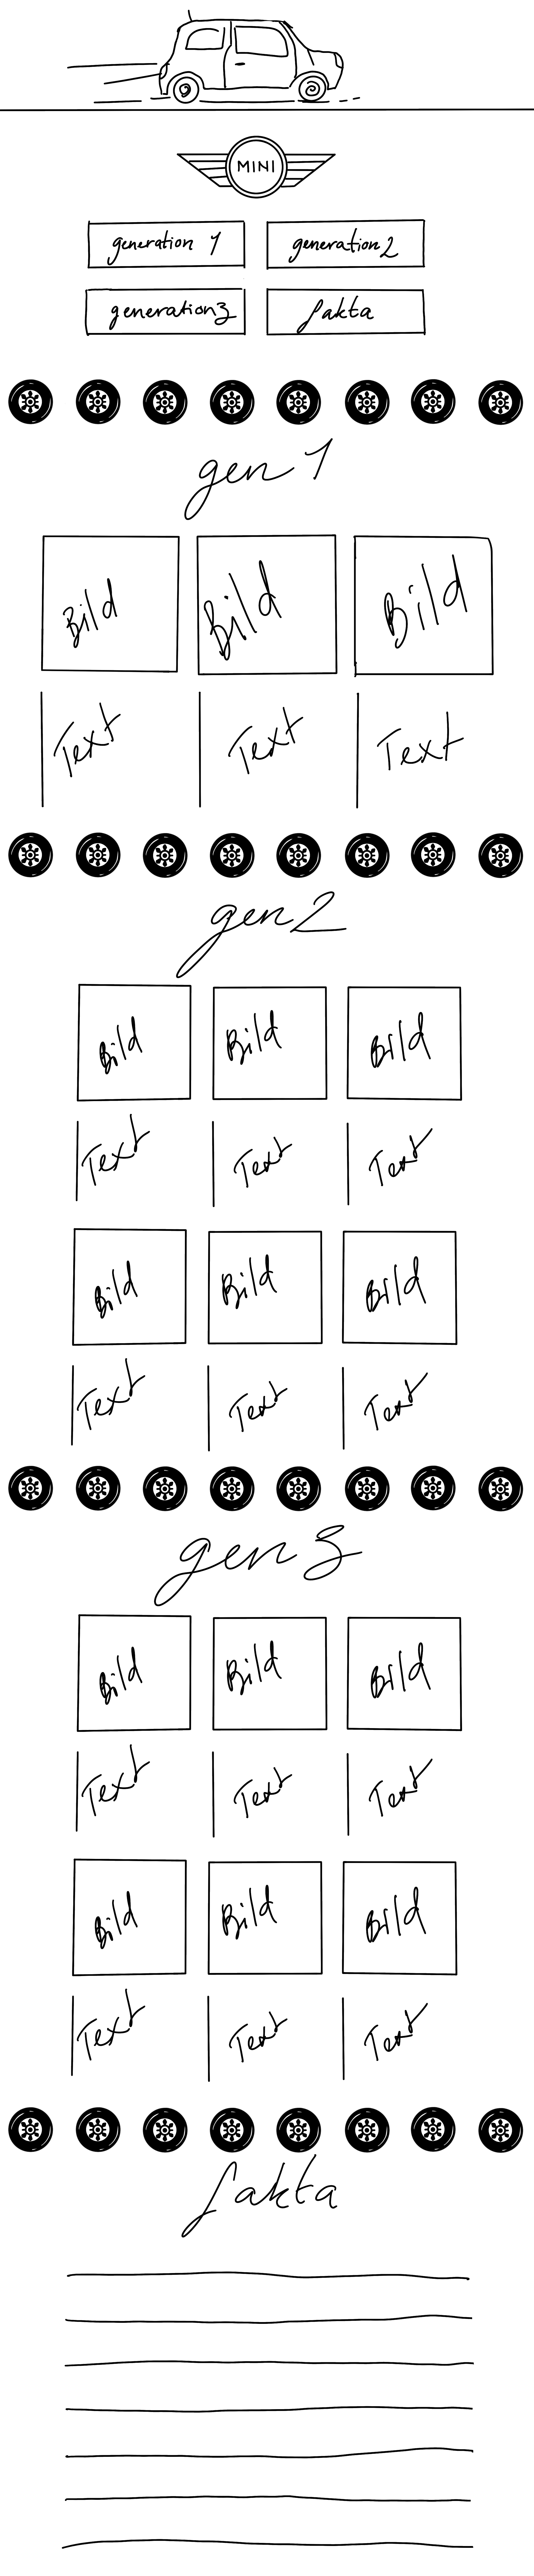 MINI
generation 1 generation 2
generation 3 fakta
gen 1
Bild Bild Bild
Text Text Text
gen 2
Bild Bild Bild
Text Text Text
Bild Bild Bild
Text Text Text
gen 3
Bild Bild Bild
Text Text Text
Bild Bild Bild
Text Text Text
fakta